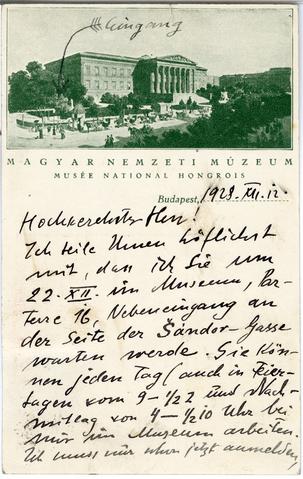 Eingang
MAGYAR NEMZETI MÚZEUM
MUSÉE NATIONAL HONGROIS
Budapest, 1929. XII. 12.
Hochverehrter Herr!
Ich teile Ihnen höflichst
mit, dass ich Sie um
22. XII. im Museum, Par-
terre 16, Nebeneingang an
der Seite der Sándor-Gasse
warten werde. Sie kön-
nen jeden Tag (auch in Feier-
tagen vom 9-1/2 und Nach-
mittag von 4-1/2 10 Uhr bei
mir im Museum arbeiten.
Ich muss nur schon jetzt anmelden,